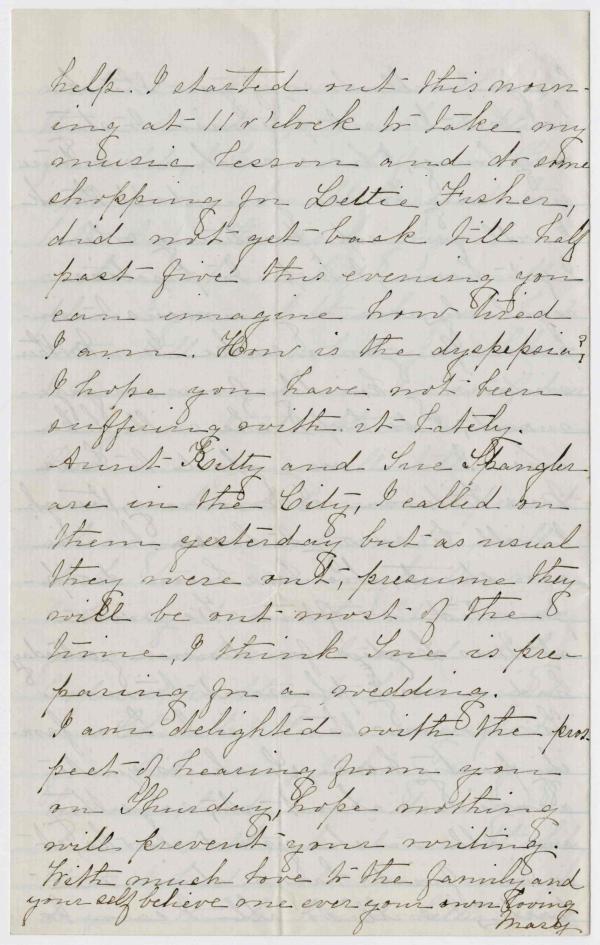 help. I started out this morn-
ing at 11 o'clock to take my
music lesson and do some
shopping for Lettie Fisher,
did not get back till half
past five this evening you
can imagine how tired
I am. How is the dyspepsia?
I hope you have not been
suffering with it lately.
Aunt Kitty and Sue Spangler
are in the City, I called on
them yesterday but as usual
they were out, presume they
will be out most of the
time, I think Sue is pre-
paring for a wedding.
I am delighted with the pros-
pect of hearing from you
on Thursday, hope nothing
will prevent your writing.
With much love to the family and
your self believe me ever your own loving
Mary